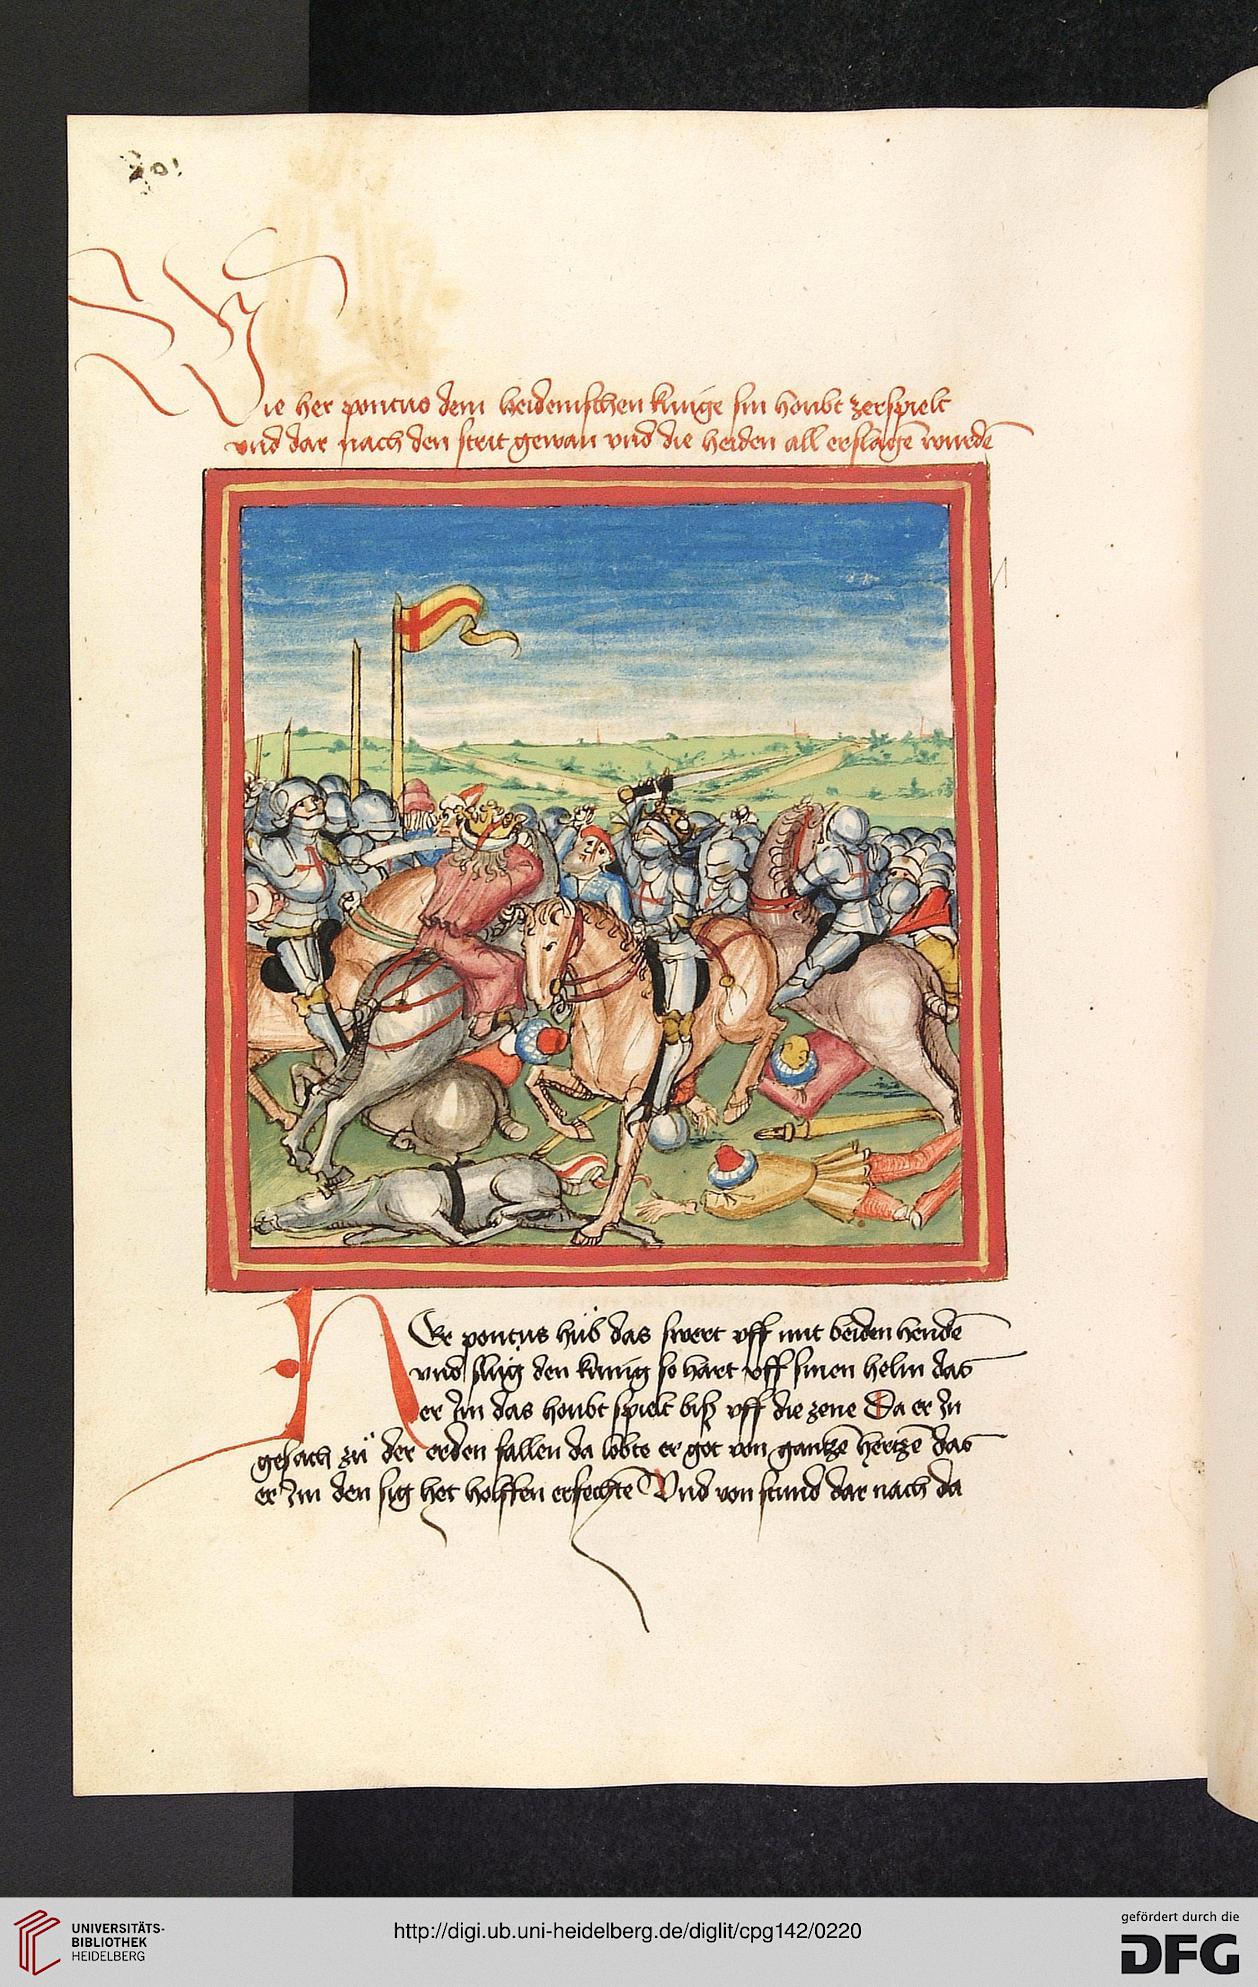 Wie her pontus dem heidenischen kunige sin houbt zerspielt
vnd dar nach den strit gewan vnd die heiden all erslagē wurdē
HEr pontus hůb das swert vff mit beiden hendē
vnd slůg den kunig so hart vff sinen helm das
er Im das houbt spielt biß vff die zene Da er In
gesach zů der erden fallen da lobte er got von gantzē hertzē das
er Im den sig het holffen erfechtē Vnd von stund dar nach da
UNIVERSITÄTS-
BIBLIOTHEK
HEIDELBERG
http://digi.ub.uni-heidelberg.de/diglit/cpg142/0220
gefördert durch die
DFG